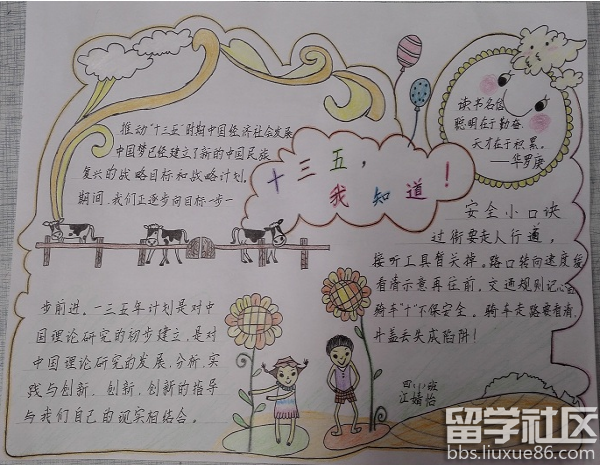 推动“十三五”时期中国经济社会发展
中国梦已经建立了新的中国民族
复兴的战略目标和战略计划。
期间，我们正逐步向目标一步一
十三五，
我知道！
读书名位
聪明在于勤奋，
天才在于积累。
——华罗庚
安全小口诀
过街要走人行道，
接听工具暂关掉。路口转向速度缓
看清示意再往前。交通规则记心
骑车“十”不保安全。骑车走路要看清
井盖丢失成陷阱！
步前进。一三五年计划是对中
国理论研究的初步建立，是对
中国理论研究的发展、分析、实
践与创新、创新、创新的指导
与我们自己的现实相结合。
江婧怡
留学社区
bbs.liuxue86.com